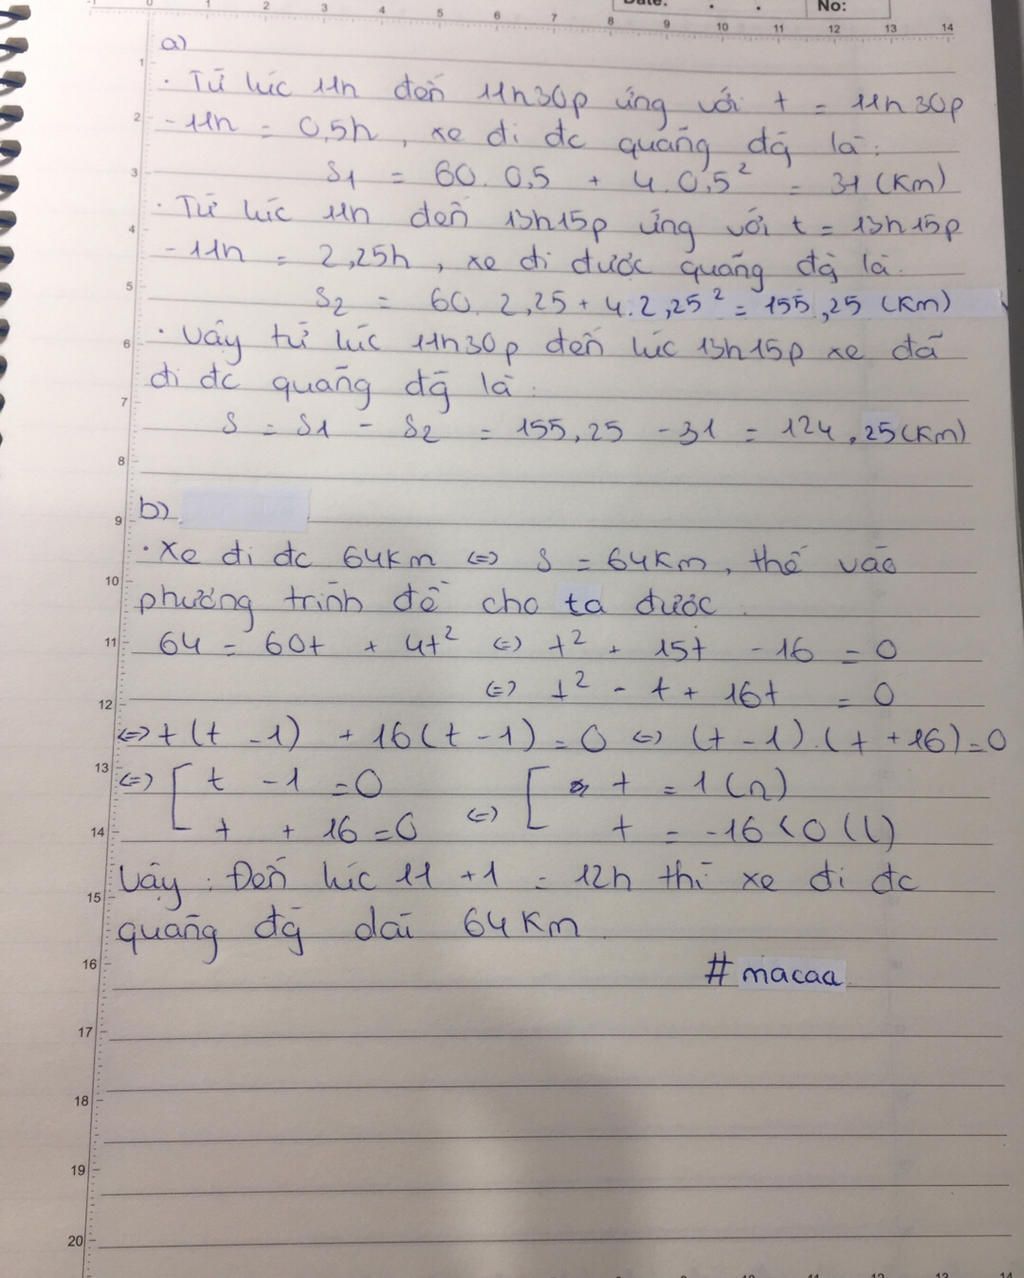 Date:
No:
a)
· Từ lúc 11h đến 11h30p ứng với t = 11h30p
- 11h = 0,5h, xe đi đc quãng đg là:
S1 = 60.0,5 + 4.0,5² = 31 (km)
· Từ lúc 11h đến 13h15p ứng với t = 13h15p
- 11h = 2,25h, xe đi được quãng đg là:
S2 = 60.2,25 + 4.2,25² = 155,25 (km)
· Vậy từ lúc 11h30p đến lúc 13h15p xe đã
đi đc quãng đg là:
S = S1 - S2 = 155,25 - 31 = 124,25 (km)
b)
· Xe đi đc 64km <=> S = 64km, thế vào
phương trình đề cho ta được.
64 = 60t + 4t² <=> t² + 15t - 16 = 0
<=> t² - t + 16t = 0
<=> t(t - 1) + 16(t - 1) = 0 <=> (t - 1).(t + 16) = 0
<=> [ t - 1 = 0 <=> [ t = 1 (n)
t + 16 = 0 t = -16 < 0 (l)
Vậy: Đến lúc 11 + 1 = 12h thì xe đi đc
quãng đg dài 64km.
# macaa